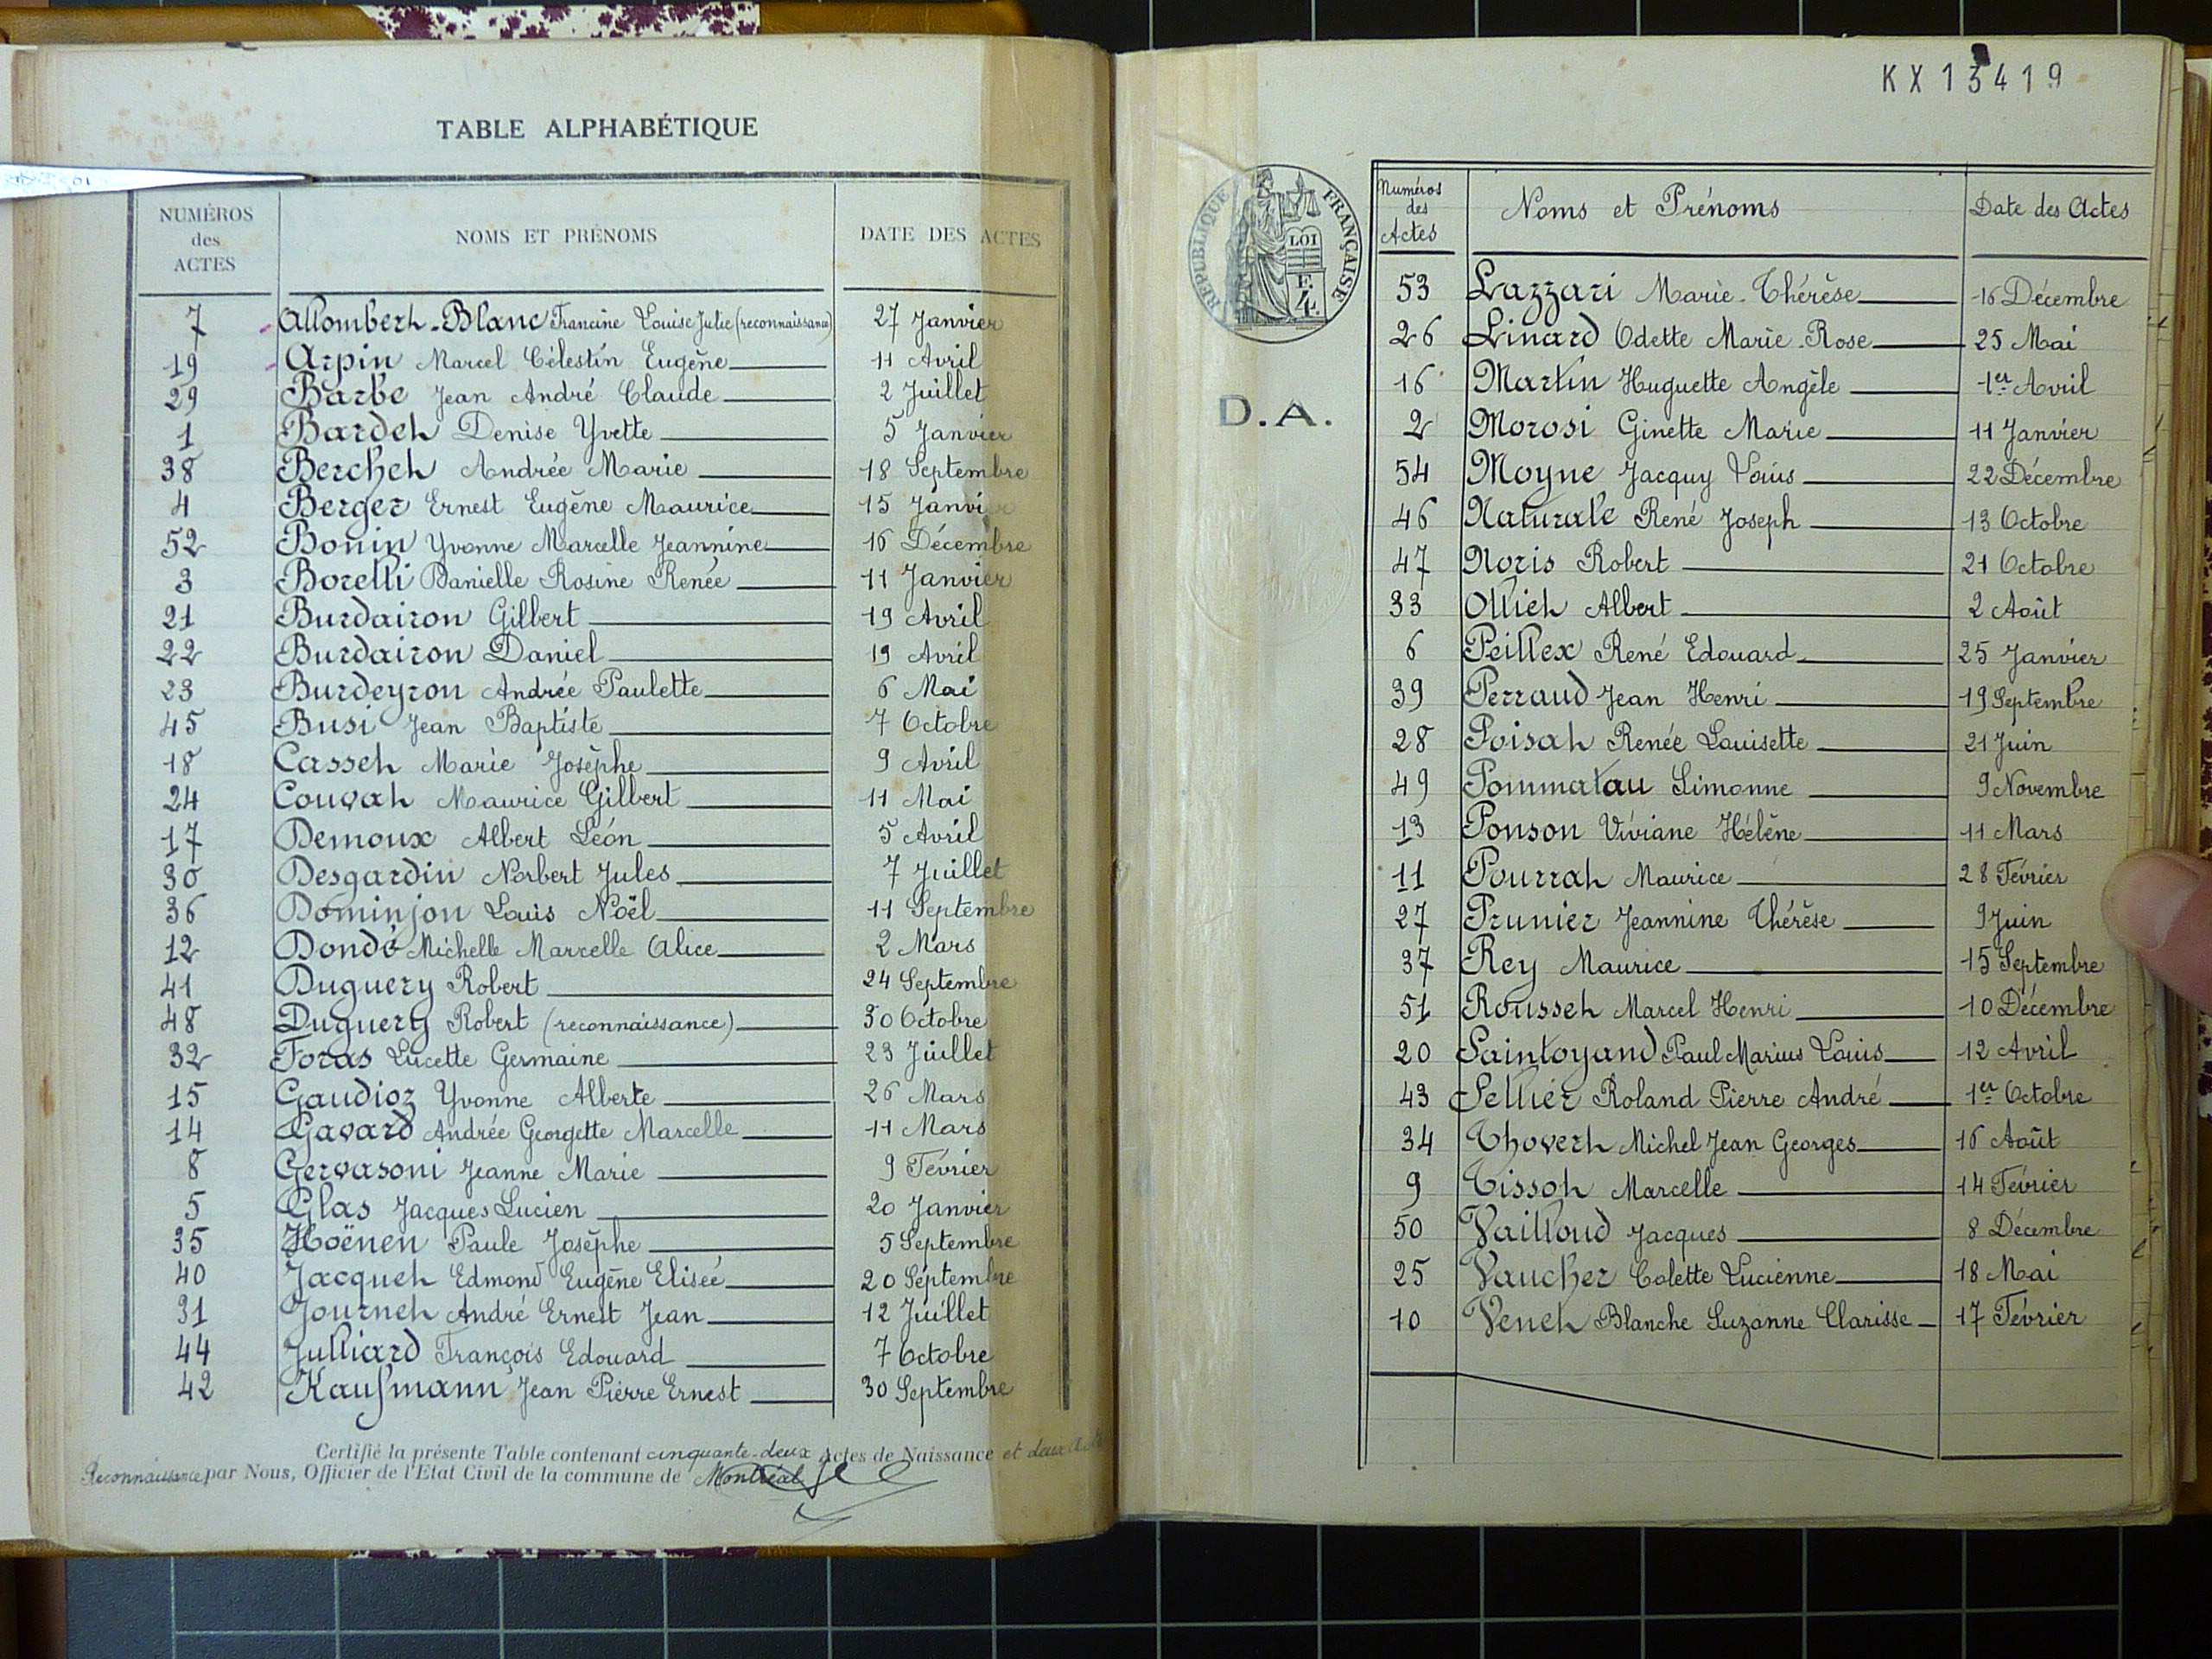 TABLE ALPHABÉTIQUE
NUMÉROS des ACTES NOMS ET PRÉNOMS DATE DES ACTES
7 Allombert-Blanc Francine Louise Julie (reconnaissance) 27 Janvier
19 Arpin Marcel Célestin Eugène 11 Avril
29 Barbe Jean André Claude 2 Juillet
1 Bardet Denise Yvette 5 Janvier
38 Berchet Andrée Marie 18 Septembre
4 Berger Ernest Eugène Maurice 15 Janvier
52 Bonin Yvonne Marcelle Jeannine 16 Décembre
3 Borelli Danielle Rosine Renée 11 Janvier
21 Burdairon Gilbert 19 Avril
22 Burdairon Daniel 19 Avril
23 Burdeyron Andrée Paulette 6 Mai
45 Busi Jean Baptiste 7 Octobre
18 Casset Marie Josèphe 9 Avril
24 Couvat Maurice Gilbert 11 Mai
17 Demoux Albert Léon 5 Avril
30 Desgardin Norbert Jules 7 Juillet
36 Dominjon Louis Noël 11 Septembre
12 Dondé Michelle Marcelle Alice 2 Mars
41 Duguery Robert 24 Septembre
48 Duguery Robert (reconnaissance) 30 Octobre
32 Foras Lucette Germaine 23 Juillet
15 Gaudioz Yvonne Alberte 26 Mars
14 Gavard Andrée Georgette Marcelle 11 Mars
8 Gervasoni Jeanne Marie 9 Février
5 Glas Jacques Lucien 20 Janvier
35 Hoënen Paule Josèphe 5 Septembre
40 Jacquet Edmond Eugène Elisée 20 Septembre
31 Journet André Ernest Jean 12 Juillet
44 Julliard François Edouard 7 Octobre
42 Kaufmann Jean Pierre Ernest 30 Septembre
Certifié la présente Table contenant cinquante-deux Actes de Naissance et deux
Reconnaissance par Nous, Officier de l'Etat Civil de la commune de Montréal
KX13419
RÉPUBLIQUE FRANÇAISE
LOI
F.
4.
D.A.
Numéros des Actes Noms et Prénoms Date des Actes
53 Lazzari Marie-Thérèse 16 Décembre
26 Linard Odette Marie-Rose 25 Mai
16 Martin Huguette Angèle 1er Avril
2 Morosi Ginette Marie 11 Janvier
54 Moyne Jacquy Louis 22 Décembre
46 Naturale René Joseph 13 Octobre
47 Noris Robert 21 Octobre
33 Olliet Albert 2 Août
6 Peillex René Edouard 25 Janvier
39 Perraud Jean Henri 19 Septembre
28 Poisat Renée Louisette 21 Juin
49 Pommatau Simonne 9 Novembre
13 Ponson Viviane Hélène 11 Mars
11 Pourrat Maurice 28 Février
27 Prunier Jeannine Thérèse 9 Juin
37 Rey Maurice 15 Septembre
51 Rousset Marcel Henri 10 Décembre
20 Saintoyand Paul Marius Louis 12 Avril
43 Sellier Roland Pierre André 1er Octobre
34 Thovert Michel Jean Georges 16 Août
9 Tissot Marcelle 14 Février
50 Vailloud Jacques 8 Décembre
25 Vaucher Colette Lucienne 18 Mai
10 Venet Blanche Suzanne Clarisse 17 Février